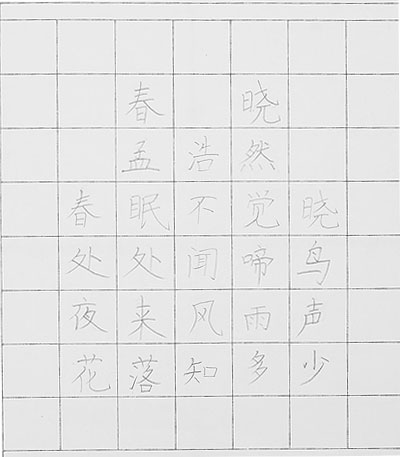 春晓
孟浩然
春眠不觉晓
处处闻啼鸟
夜来风雨声
花落知多少